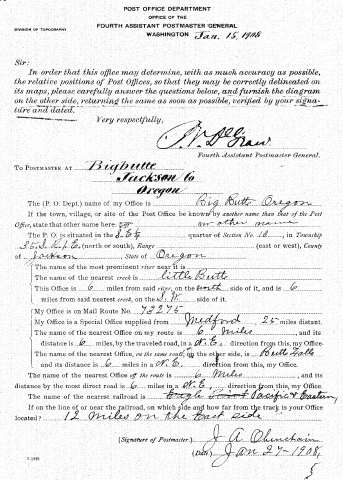 POST OFFICE DEPARTMENT
OFFICE OF THE
FOURTH ASSISTANT POSTMASTER GENERAL
DIVISION OF TOPOGRAPHY
WASHINGTON Jan. 15, 1908
Sir:
In order that this office may determine, with as much accuracy as possible,
the relative positions of Post Offices, so that they may be correctly delineated on
its maps, please carefully answer the questions below, and furnish the diagram
on the other side, returning the same as soon as possible, verified by your signa-
ture and dated.
Very respectfully,
Fourth Assistant Postmaster General.
TO POSTMASTER AT Bigbutte
Jackson Co
Oregon
The (P. O. Dept.) name of my Office is Big Butte Oregon
If the town, village, or site of the Post Office be known by another name than that of the Post
Office, state that other name here: no other name
The P. O. is situated in the quarter of Section No. 10, in Township
35 S (north or south), Range (east or west), County
of Jackson, State of Oregon
The name of the most prominent river near it is
The name of the nearest creek is little Butte
This Office is 6 miles from said river, on the side of it, and is 6
miles from said nearest creek, on the S.W. side of it.
My Office is on Mail Route No. 73275
My Office is a Special Office supplied from Medford, 25 miles distant.
The name of the nearest Office on my route is 6 miles, and its
distance is 6 miles, by the traveled road, in a N.E. direction from this, my Office.
The name of the nearest Office, on the same route, on the other side, is Butte Falls
and its distance is 6 miles in a N.E. direction from this, my Office.
The name of the nearest Office off the route is 6 Miles, and its
distance by the most direct road is 6 miles in a N.E. direction from this, my Office.
The name of the nearest railroad is Eagle Point Pacific & Eastern
If on the line of or near the railroad, on which side and how far from the track is your Office
located? 12 miles on the East side
(Signature of Postmaster) J A
(Date) Jan 27-1908,